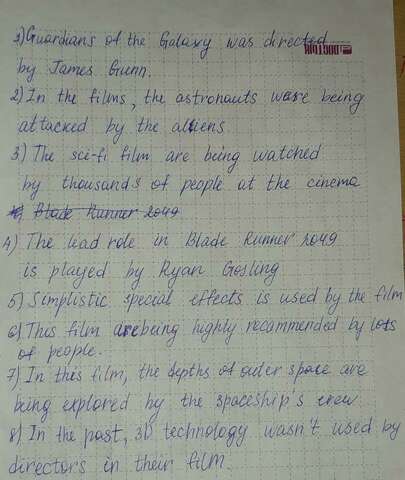 1) Guardians of the Galaxy was directed
by James Gunn.
2) In the films, the astronauts were being
attacked by the aliens
3) The sci-fi film are being watched
by thousands of people at the cinema
4) Blade Runner 2049
4) The lead role in Blade Runner 2049
is played by Ryan Gosling
5) Simplistic special effects is used by the film
6) This film are being highly recommended by lots
of people.
7) In this film, the depths of outer space are
being explored by the spaceship's crew
8) In the past, 3D technology wasn't used by
directors in their film.